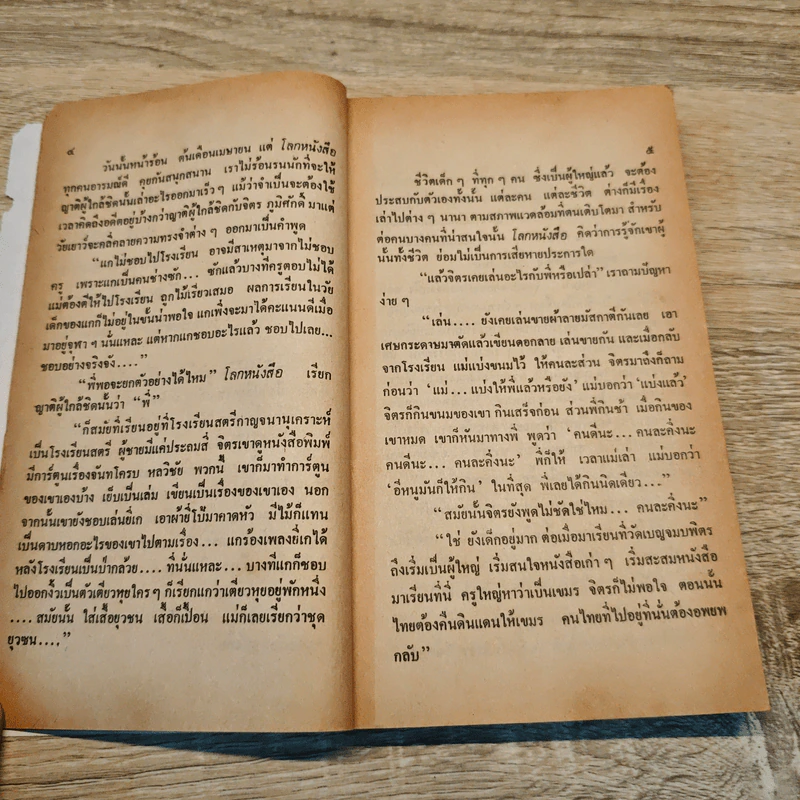 ๔
วันนั้นหน้าร้อน ต้นเดือนเมษายน แต่ โลกหนังสือ
ทุกคนอารมณ์ดี คุยกันสนุกสนาน เราไม่ร้อนรนนักที่จะให้
ญาติผู้ใกล้ชิดนั้นเล่าอะไรออกมาเร็วๆ แม้ว่าจำเป็นจะต้องใช้
เวลาคิดถึงอดีตอยู่บ้างกว่าญาติผู้ใกล้ชิดกับจิตร ภูมิศักดิ์ มาแต่
วัยเยาว์จะคลี่คลายความทรงจำต่างๆ ออกมาเป็นคำพูด
“แกไม่ชอบไปโรงเรียน อาจมีสาเหตุมาจากไม่ชอบ
ครู เพราะแกเป็นคนช่างซัก... ซักแล้วบางทีครูตอบไม่ได้
แม่ต้องตีให้ไปโรงเรียน ถูกไม้เรียวเสมอ ผลการเรียนในวัย
เด็กของแกก็ไม่อยู่ในขั้นน่าพอใจ แกเพิ่งจะมาได้คะแนนดีเมื่อ
มาอยู่จุฬาๆ นั่นแหละ แต่หากแกชอบอะไรแล้ว ชอบไปเลย...
ชอบอย่างจริงจัง....”
“พี่พอจะยกตัวอย่างได้ไหม” โลกหนังสือ เรียก
ญาติผู้ใกล้ชิดนั้นว่า “พี่”
“ก็สมัยที่เรียนอยู่ที่โรงเรียนสตรีกาญจนานุเคราะห์
เป็นโรงเรียนสตรี ผู้ชายมีแค่ประถมสี่ จิตรเขาดูหนังสือพิมพ์
มีการ์ตูนเรื่องจันทโครบ หลวิชัย พวกนี้ เขาก็มาทำการ์ตูน
ของเขาเองบ้าง เย็บเป็นเล่ม เขียนเป็นเรื่องของเขาเอง นอก
จากนั้นเขายังชอบเล่นยี่เก เอาผ้ายี่โป้มาคาดหัว มีไม้ก็แทน
เป็นดาบหอกอะไรของเขาไปตามเรื่อง... แกร้องเพลงยี่เกได้
หลังโรงเรียนเป็นป่ากล้วย.... ที่นั่นแหละ... บางทีแกก็ชอบ
ไปออกงิ้วเป็นตัวเตียวหุยใครๆ ก็เรียกแกว่าเตียวหุยอยู่พักหนึ่ง
.... สมัยนั้น ใส่เสื้อยุวชน เสื้อก็เปื้อน แม่ก็เลยเรียกว่าชุด
ยุวชน....”
๕
ชีวิตเด็กๆ ที่ทุกๆ คน ซึ่งเป็นผู้ใหญ่แล้ว จะต้อง
ประสบกับตัวเองทั้งนั้น แต่ละคน แต่ละชีวิต ต่างก็มีเรื่อง
เล่าไปต่างๆ นานา ตามสภาพแวดล้อมที่ตนเติบโตมา สำหรับ
ต่อคนบางคนที่น่าสนใจนั้น โลกหนังสือ คิดว่าการรู้จักเขาผู้
นั้นทั้งชีวิต ย่อมไม่เป็นการเสียหายประการใด
“แล้วจิตรเคยเล่นอะไรกับพี่หรือเปล่า” เราถามปัญหา
ง่ายๆ
“เล่น.... ยังเคยเล่นขายผ้าลายมัสกาตีกันเลย เอา
เศษกระดาษมาตัดแล้วเขียนดอกลาย เล่นขายกัน และเมื่อกลับ
จากโรงเรียน แม่แบ่งขนมไว้ ให้คนละส่วน จิตรมาถึงก็ถาม
ก่อนว่า ‘แม่... แบ่งให้พี่แล้วหรือยัง’ แม่บอกว่า ‘แบ่งแล้ว’
จิตรก็กินขนมของเขา กินเสร็จก่อน ส่วนพี่กินช้า เมื่อกินของ
เขาหมด เขาก็หันมาทางพี่ พูดว่า ‘คนดีนะ... คนละคึ่งนะ
คนดีนะ... คนละคึ่งนะ’ พี่ก็ให้ เวลาแม่เล่า แม่บอกว่า
‘อีหนูมันก็ให้กิน’ ในที่สุด พี่เลยได้กินนิดเดียว...”
“สมัยนั้นจิตรยังพูดไม่ชัดใช่ไหม... คนละคึ่งนะ”
“ใช่ ยังเด็กอยู่มาก ต่อเมื่อมาเรียนที่วัดเบญจมบพิตร
ถึงเริ่มเป็นผู้ใหญ่ เริ่มสนใจหนังสือเก่าๆ เริ่มสะสมหนังสือ
มาเรียนที่นี่ ครูใหญ่หาว่าเป็นเขมร จิตรก็ไม่พอใจ ตอนนั้น
ไทยต้องคืนดินแดนให้เขมร คนไทยที่ไปอยู่ที่นั่นต้องอพยพ
กลับ”